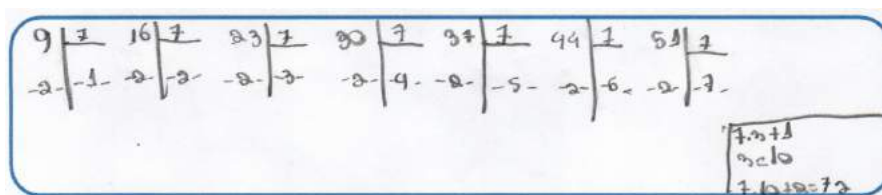 9 7 16 7 23 7 30 7 37 7 44 7 51 7
-2- -1- -2- -2- -2- -3- -2- -4- -2- -5- -2- -6- -2- -7-
7.n+1
n=10
7.10+2=72